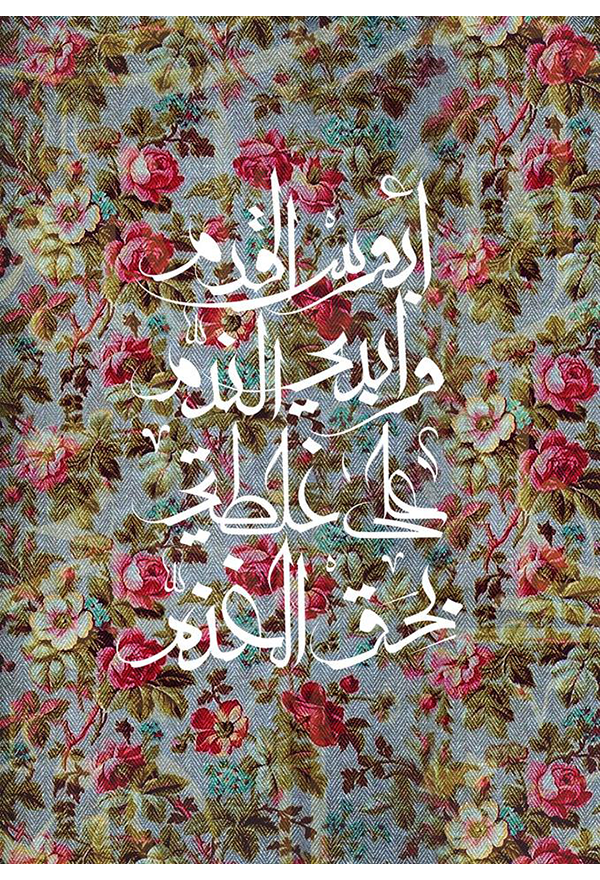 أبوس القدم
وابدي الندم
على غلطتي
بحق الغنم